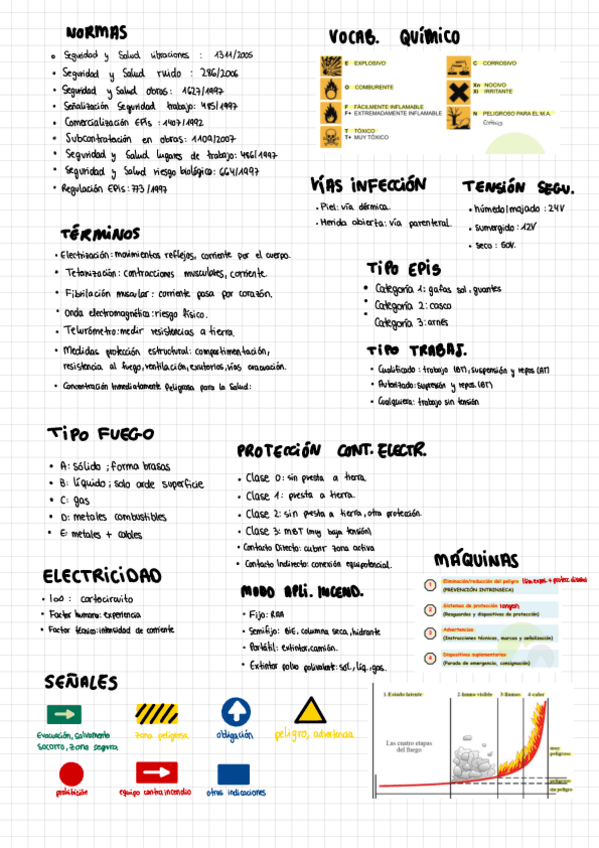 NORMAS
Seguridad y Salud vibraciones : 1311/2005
Seguridad y Salud ruido : 286/2006
Seguridad y Salud obras : 1627/1997
Señalización Seguridad trabajo: 485/1997
Comercialización EPIs : 1407/1992
Subcontratación en obras: 1109/2007
Seguridad y Salud lugares de trabajo: 486/1997
Seguridad y Salud riesgo biológico: 664/1997
Regulación EPIs: 773/1997
VOCAB. QUÍMICO
E EXPLOSIVO
O COMBURENTE
F FÁCILMENTE INFLAMABLE
F+ EXTREMADAMENTE INFLAMABLE
T TÓXICO
T+ MUY TÓXICO
C CORROSIVO
Xn NOCIVO
Xi IRRITANTE
N PELIGROSO PARA EL M.A.
VÍAS INFECCIÓN
Piel: vía dérmica.
Herida abierta: vía parenteral.
TENSIÓN SEGU.
húmedo/mojado : 24V
sumergido : 12V
seco : 50V.
TÉRMINOS
Electrización: movimientos reflejos, corriente por el cuerpo.
Tetanización: contracciones musculares, corriente.
Fibrilación muscular : corriente pasa por corazón.
Onda electromagnética: riesgo físico.
Telurómetro: medir resistencias a tierra.
Medidas protección estructural: compartimentación,
resistencia al fuego, ventilación, exutorios, vías evacuación.
Concentración Inmediatamente Peligrosa para la Salud:
TIPO EPIS
Categoría 1: gafas sol, guantes
Categoría 2: casco
Categoría 3: arnés
TIPO TRABAJ.
Cualificado : trabajo (BT), suspensión y repos. (AT)
Autorizado: supresión y repos. (BT)
Cualquiera: trabajo sin tensión
TIPO FUEGO
A: sólido ; forma brasas
B: líquido ; solo arde superficie
C: gas
D: metales combustibles
E: metales + cables
PROTECCIÓN CONT. ELECTR.
Clase 0: sin puesta a tierra.
Clase 1: puesta a tierra.
Clase 2: sin puesta a tierra, otra protección.
Clase 3: MBT (muy baja tensión)
Contacto Directo: cubrir zona activa
Contacto Indirecto: conexión equipotencial.
ELECTRICIDAD
100 : cortocircuito
Factor humano: experiencia
Factor técnico: intensidad de corriente
MODO APLI. INCEND.
Fijo: RAA
Semifijo: BIE, columna seca, hidrante
Portátil: extintor, camión.
Extintor polvo polivalente: sol., líq., gas.
MÁQUINAS
1 Eliminación/reducción del peligro
(PREVENCIÓN INTRÍNSECA)
2 Sistemas de protección
(Resguardos y dispositivos de protección)
3 Advertencias
(Instrucciones técnicas, marcas y señalización)
4 Dispositivos suplementarios
(Parada de emergencia, consignación)
SEÑALES
Evacuación, salvamento
Socorro, zona segura
zona peligrosa
obligación
peligro, advertencia
prohibiste
equipo contraincendio
otras indicaciones
1 Estado latente
2 humo visible
3 llamas
4 calor
Las cuatro etapas
del fuego
muy
peligroso
peligroso
sin peligro